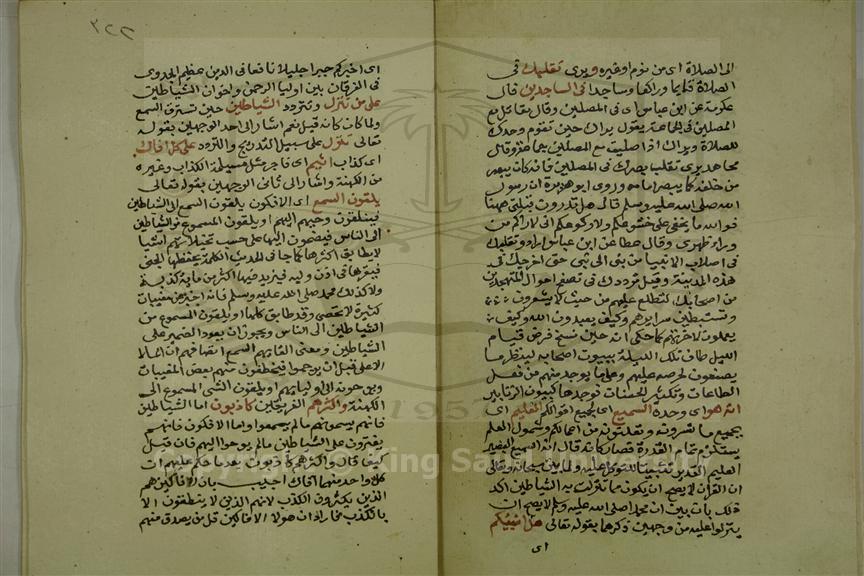 الى الصلاة اى من نوم اوغيره ويرى تقلبك فى
الصلاة قايما وراكعا وساجدا فى الساجدين قال
عكرمة عن ابن عباس اى فى المصلين وقال مقاتل مع
المصلين فى الجماعة يقول يراك حين تقوم وحدك
للصلاة ويراك اذا صليت مع المصلين جماعة وقال
مجاهد يرى تقلب بصرك فى المصلين فانه كان يبصر
من خلفه كما يبصر امامه وروى ابو هريرة ان رسول
الله صلى الله عليه وسلم قال هل تدرون قبلتى ههنا
فوالله ما يخفى على خشوعكم ولا ركوعكم انى لاراكم من
وراء ظهرى وقال عطا عن ابن عباس اراد وتقلبك
فى اصلاب الانبيا من نبى الى نبى حتى اخرجك فى
هذه المدينة وقيل ترددك فى تصفح احوال المتهجدين
من اصحابك لتطلع عليهم من حيث لا يشعرون
وتستبطن سرايرهم وكيف يعبدون الله وكيف
يعملون لاخرتهم كما حكى انه حين نسخ فرض قيام
الليل طاف تلك الليلة ببيوت اصحابه لينظر ما
يصنعون لحرصه عليهم وعلى ما يوجد منهم من فعل
الطاعات وتكثير الحسنات فوجدها كبيوت الزنابير
انه هو اى وحده السميع اى لجميع اقوالكم العليم اى
بجميع ما تسرونه وتعلنونه من اعمالكم وشمول العلم
يستلزم تمام القدرة فصار كانه قال انه السميع البصير
العليم القدير تثبيتا للتوكل عليه ولما بين سبحانه وتعالى
ان القرآن لا يصح ان يكون مما تنزلت به الشياطين اكد
ذلك بان بين ان محمدا صلى الله عليه وسلم لا يصح ان
ينزلوا عليه من وجهين ذكرهما بقوله تعالى هل انبيكم
اى
٣٢٢
اى اخبركم خبرا جليلا نافعا فى الدين عظيم الجدوى
فى الفرقان بين اوليا الرحمن واخوان الشياطين
على من تنزل وتتردد الشياطين حين تسترق السمع
ولما كان كانه قيل نعم اشار الى احد الوجهين بقوله
تعالى تنزل على سبيل التدريج والتردد على كل افاك
اى كذاب اثيم اى فاجر مثل مسيلمة الكذاب وغيره
من الكهنة واشار الى ثانى الوجهين بقوله تعالى
يلقون السمع اى الافكون يلقون السمع الى الشياطين
فيتلقون وحيهم اليهم او يلقون المسموع من الشياطين
الى الناس فيضمون اليها على حسب تخيلاتهم اشيا
لا يطابق اكثرها كما جا فى الحديث الكلمة يخطفها الجنى
فيقرها فى اذن وليه فيزيد فيها اكثر من ماية كذبة
ولا كذلك محمد صلى الله عليه وسلم فانه اخبر عن مغيبات
كثيرة لا تحصى وقد طابق كلها او يلقون المسموع من
الشياطين الى الناس ويجوز ان يعود الضمير على
الشياطين ومعنى القايهم السمع انصاتهم الى الملا
الاعلى قبل ان يرجموا فيخطفون منهم بعض المغيبات
ويوحونه الى اوليايهم او يلقون الشى المسموع الى
الكهنة واكثرهم الفريقين كاذبون اما الشياطين
فانهم يسمعونهم مالم يسمعوا واما الافكون فانهم
يفترون على الشياطين مالم يوحوا اليهم فان قيل
كيف قال واكثرهم كاذبون بعد ما حكم عليهم ان
كل واحد منهم افاك اجيب بان الافاكين هم
الذين يكثرون الكذب لانهم الذين لا ينطقون الا
بالكذب فاراد ان هولا الافاكين قل من يصدق منهم
Copyright © King Saud University
1957